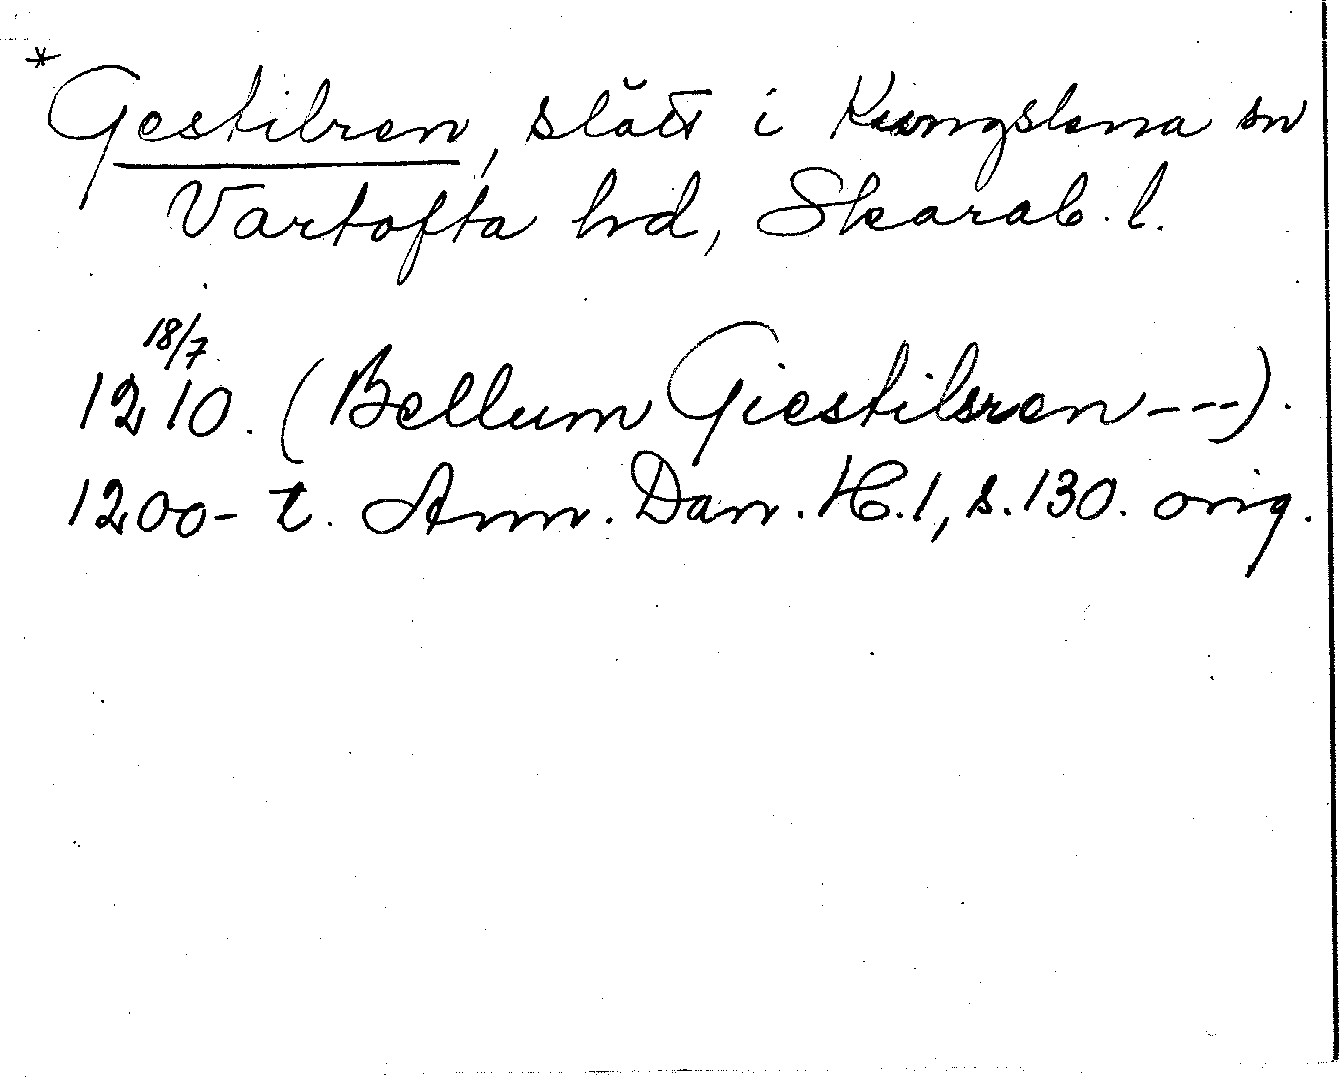 *Gestilren, slätt i Kungslena sn
Vartofta hd, Skarab. l.
12 18/7 10. (Bellum Giestilsren---).
1200-t. Ann. Dan. H. 1, s. 130. orig.